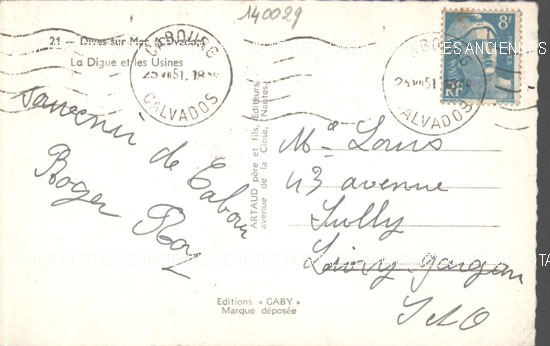 140029
21 — Dives sur Mer
La Digue et les Usines
CABOURG
25 VII 51. 18
CALVADOS
souvenir de Cabourg
Roger
ARTAUD père et fils, Éditeurs
avenue de la Close, (Nantes)
Editions « GABY »
Marque déposée
8F
POSTES
RF
CABOURG
25 VII 51
CALVADOS
Mme Louis
43 avenue
Sully
Livry-gargan
S & O
CARTES POSTALES ANCIENNES